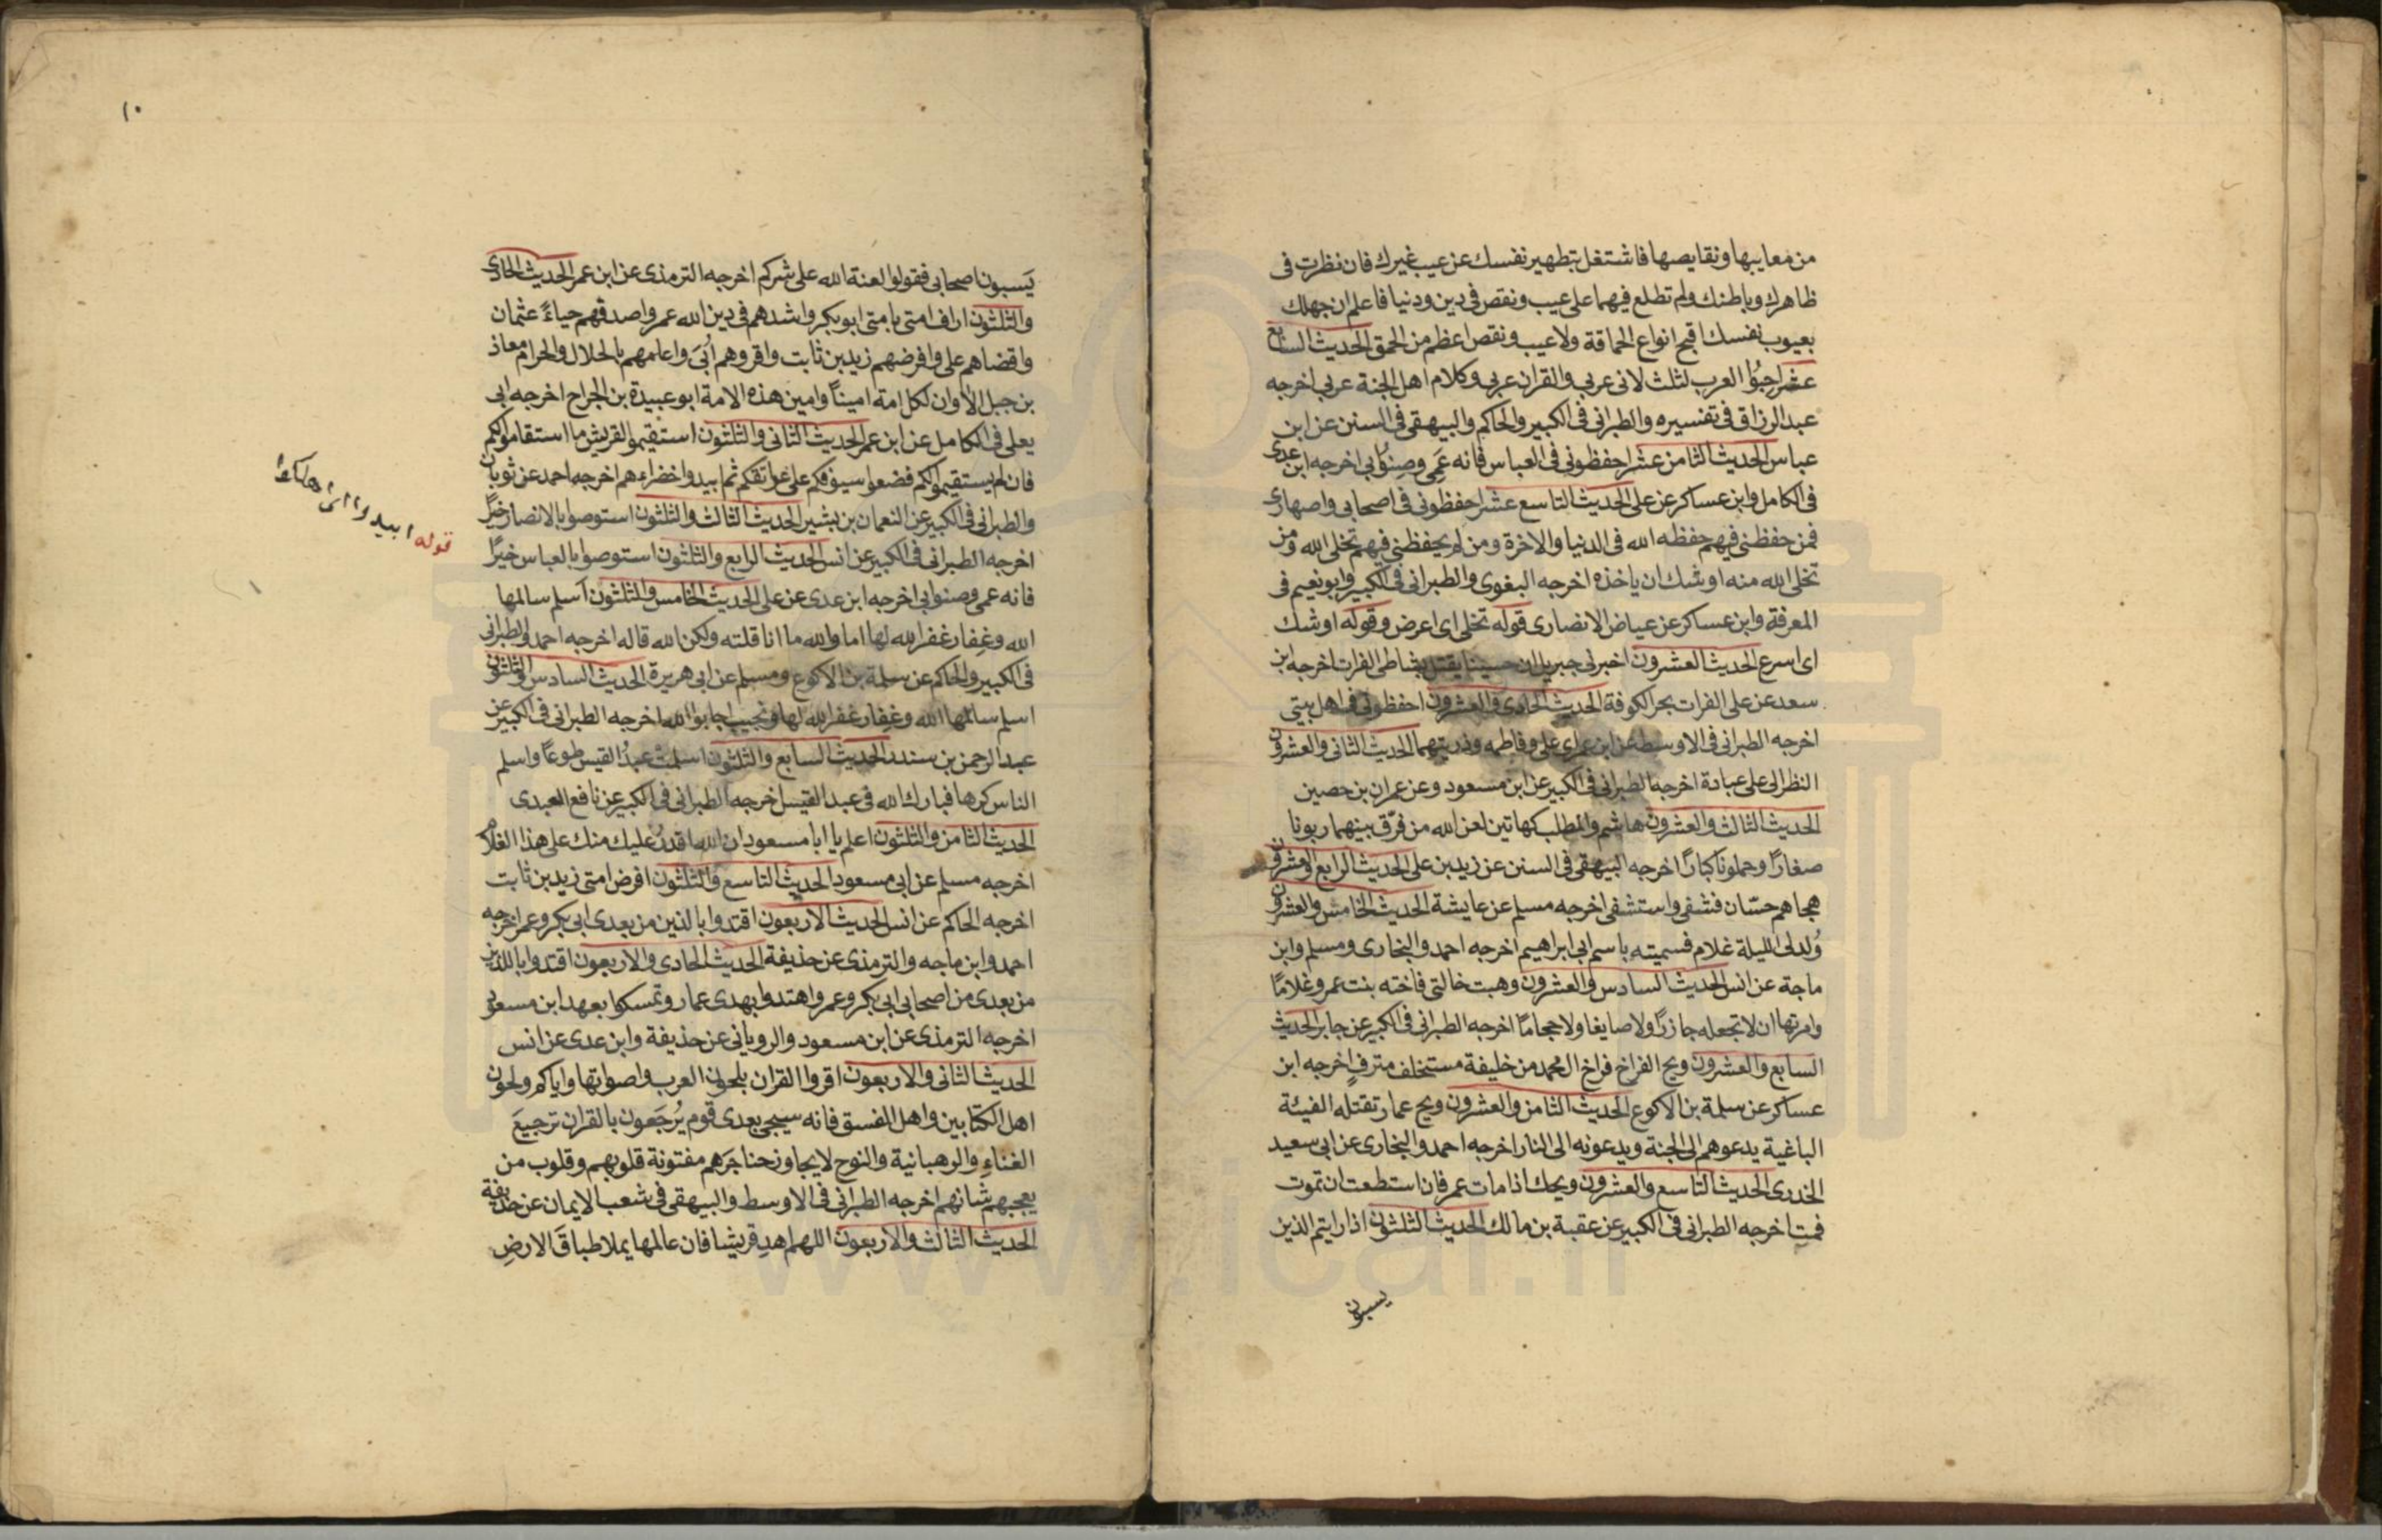 من معايبها ونقايصها فاشتغل بتطهير نفسك عن عيب غيرك فان نظرت فى
ظاهرك وباطنك ولم تطلع فيهما على عيب ونقص فى دين ودنيا فاعلم ان جهلك
بعيوب نفسك اقبح انواع الحماقة ولا عيب ونقص اعظم من الحمق الحديث السابع
عشر احبوا العرب لثلث لانى عربى والقران عربى وكلام اهل الجنة عربى اخرجه
عبد الرزاق فى تفسيره والطبرانى فى الكبير والحاكم والبيهقى فى السنن عن ابن
عباس الحديث الثامن عشر احفظونى فى العباس فانه عَمِى وصِنوُابى اخرجه ابن عدى
فى الكامل وابن عساكر عن على الحديث التاسع عشر احفظونى فى اصحابى واصهارى
فمن حفظنى فيهم حفظه الله فى الدنيا والاخرة ومن لم يحفظنى فيهم تخلى الله ومن
تخلى الله منه اوشك ان ياخذه اخرجه البغوى والطبرانى فى الكبير وابو نعيم فى
المعرفة وابن عساكر عن عياض الانصارى قوله تخلى اى اعرض وقوله اوشك
اى اسرع الحديث العشرون اخبرنى جبريل ان حسينا يقتل بشاطى الفرات اخرجه ابن
سعد عن على الفرات بحر الكوفة الحديث الحادى والعشرون احفظونى فى اهل بيتى
اخرجه الطبرانى فى الاوسط عن ابن عمر اى على وفاطمه وذريتهما الحديث الثانى والعشرون
النظر الى على عبادة اخرجه الطبرانى فى الكبير عن ابن مسعود وعن عمران بن حصين
الحديث الثالث والعشرون هاشم والمطلب كهاتين لعن الله من فرّق بينهما ربونا
صغارًا وحملونا كبارًا اخرجه البيهقى فى السنن عن زيد بن على الحديث الرابع والعشرون
هجاهم حسّان فشفى واستشفى اخرجه مسلم عن عايشة الحديث الخامس والعشرون
وُلد لى الليلة غلام فسميته باسم ابى ابراهيم اخرجه احمد والبخارى ومسلم وابن
ماجة عن انس الحديث السادس والعشرون وهبت خالتى فاخته بنت عمرو غلامًا
وامرتها ان لا تجعله جازرًا ولا صايغا ولا حجامًا اخرجه الطبرانى فى الكبير عن جابر الحديث
السابع والعشرون ويح الفراخ فراخ ال محمد من خليفة مستخلف مترفٍ اخرجه ابن
عساكر عن سلمة بن الاكوع الحديث الثامن والعشرون ويح عمار تقتله الفيئة
الباغية يدعوهم الى الجنة ويدعونه الى النار اخرجه احمد والبخارى عن ابى سعيد
الخدرى الحديث التاسع والعشرون ويحك اذا مات عمر فان استطعت ان تموت
فمت اخرجه الطبرانى فى الكبير عن عقبة بن مالك الحديث الثلثون اذا رايتم الذين
يسبون
١٠
يَسبون اصحابى فقولوا لعنة الله على شركم اخرجه الترمذى عن ابن عمر الحديث الحادى
والثلثون اراف امتى بامتى ابو بكر واشدهم فى دين الله عمر واصدقهم حياءً عثمان
واقضاهم على وافرضهم زيد بن ثابت واقروهم اُبَى واعلمهم بالحلال والحرام معاذ
بن جبل الا وان لكل امة امينًا وامين هذه الامة ابو عبيدة بن الجراح اخرجه ابى
يعلى فى الكامل عن ابن عمر الحديث الثانى والثلثون استقيموا لقريش ما استقاموا لكم
فان لم يستقيموا لكم فضعوا سيوفكم على عواتقكم ثم ابيدوا خضراءهم اخرجه احمد عن ثوبان
والطبرانى فى الكبير عن النعمان بن بشير الحديث الثالث والثلثون استوصوا بالانصار خيرًا
اخرجه الطبرانى فى الكبير عن انس الحديث الرابع والثلثون استوصوا بالعباس خيرًا
فانه عمى وصنوابى اخرجه ابن عدى عن على الحديث الخامس والثلثون اسلم سالمها
الله وغِفار غفر الله لها اما والله ما انا قلته ولكن الله قاله اخرجه احمد والطبرانى
فى الكبير والحاكم عن سلمة بن الاكوع ومسلم عن ابى هريرة الحديث السادس والثلثون
اسلم سالمها الله وغِفار غفر الله لها وتجيب اجابوا الله اخرجه الطبرانى فى الكبير عن
عبد الرحمن بن سندد الحديث السابع والثلثون اسلمت عبدُ القيس طوعًا واسلم
الناس كرها فبارك الله فى عبد القيس اخرجه الطبرانى فى الكبير عن نافع العبدى
الحديث الثامن والثلثون اعلم يا ابا مسعود ان الله اقدرُ عليك منك على هذا الغلام
اخرجه مسلم عن ابى مسعود الحديث التاسع والثلثون افرض امتى زيد بن ثابت
اخرجه الحاكم عن انس الحديث الاربعون اقتدوا بالذين من بعدى ابى بكر وعمر اخرجه
احمد وابن ماجه والترمذى عن حذيفة الحديث الحادى والاربعون اقتدوا باللذين
من بعدى من اصحابى ابى بكر وعمر واهتدوا بهدى عمار وتمسكوا بعهد ابن مسعود
اخرجه الترمذى عن ابن مسعود والرويانى عن حذيفة وابن عدى عن انس
الحديث الثانى والاربعون اقروا القران بلحون العرب واصواتها واياكم ولحون
اهل الكتابين واهل الفسق فانه سيجى بعدى قوم يُرَجعون بالقران ترجيعَ
الغناءِ والرهبانية والنوح لا يجاوز حناجرهم مفتونة قلوبهم وقلوب من
يعجبهم شانهم اخرجه الطبرانى فى الاوسط والبيهقى فى شعب الايمان عن حذيفة
الحديث الثالث والاربعون اللهم اهدِ قريشا فان عالمها يملا طباقَ الارضِ
قوله ابيدوا اى اهلكوا
www.ical.ir